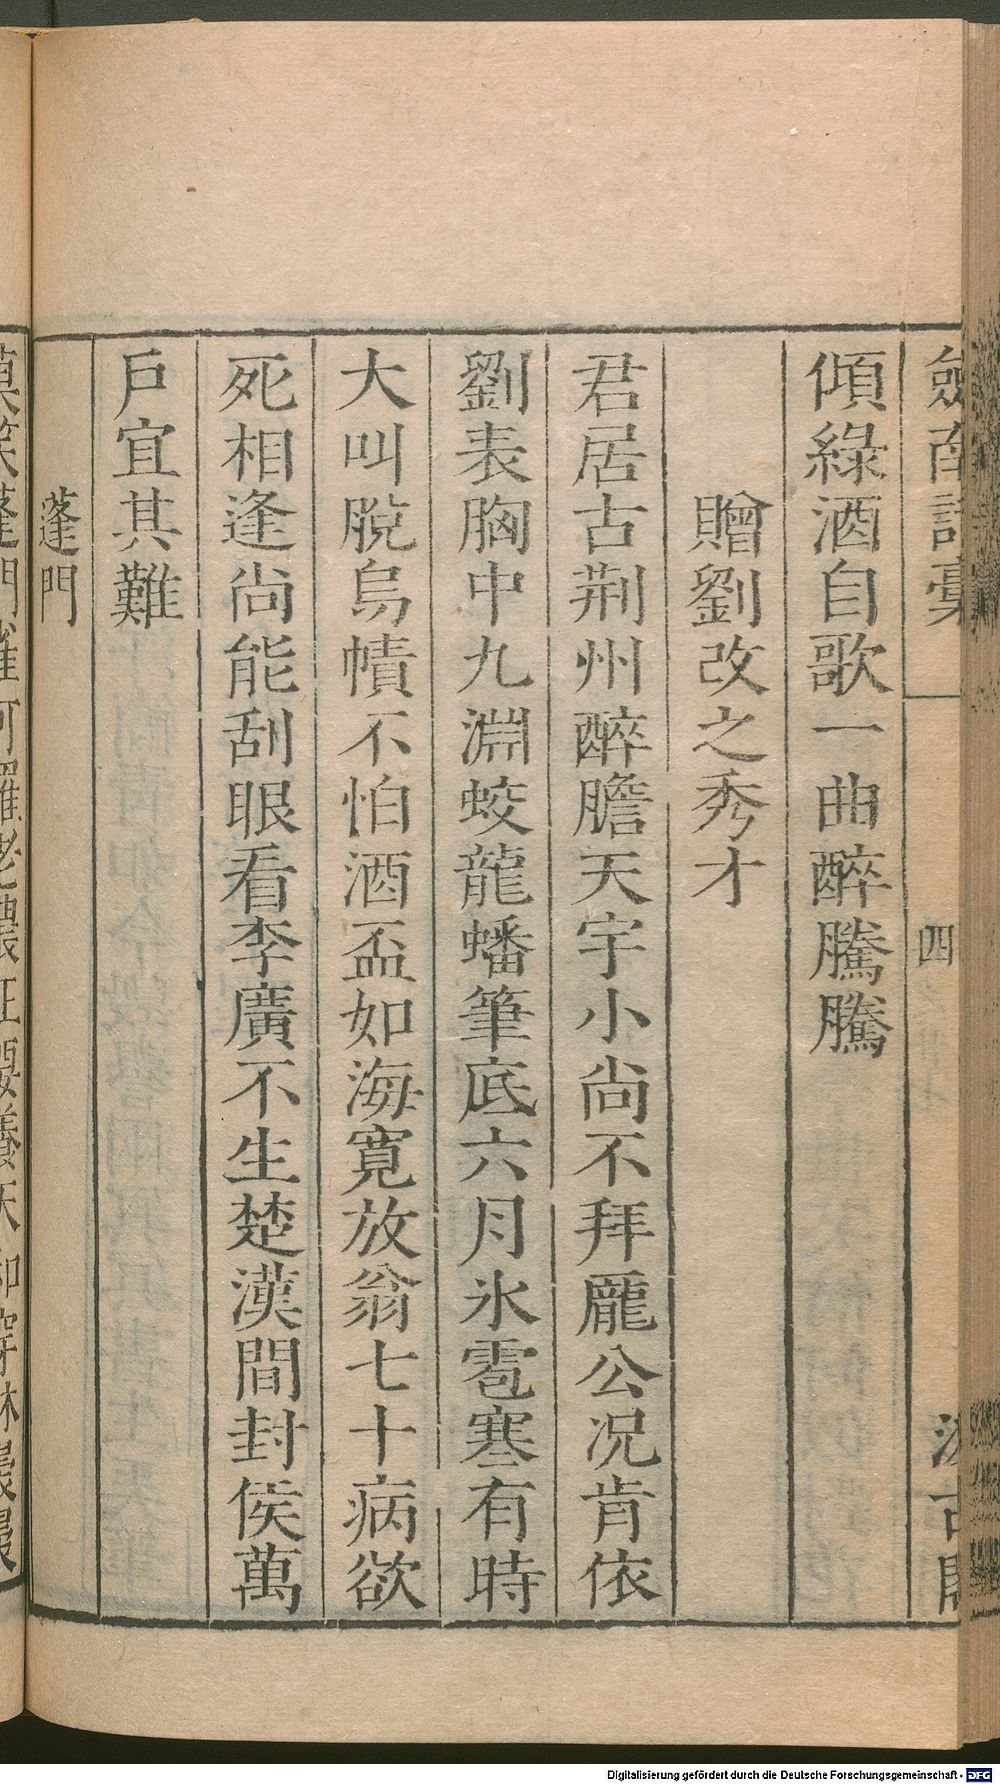 劍南詩稾
四
汲古閣
傾綠酒自歌一曲醉騰騰
贈劉改之秀才
君居古荆州醉膽天宇小尚不拜龐公况肯依
劉表胸中九淵蛟龍蟠筆底六月氷雹寒有時
大叫脫烏幘不怕酒盃如海寬放翁七十病欲
死相逢尚能刮眼看李廣不生楚漢間封侯萬
戶宜其難
蓬門
Digitalisierung gefördert durch die Deutsche Forschungsgemeinschaft - DFG